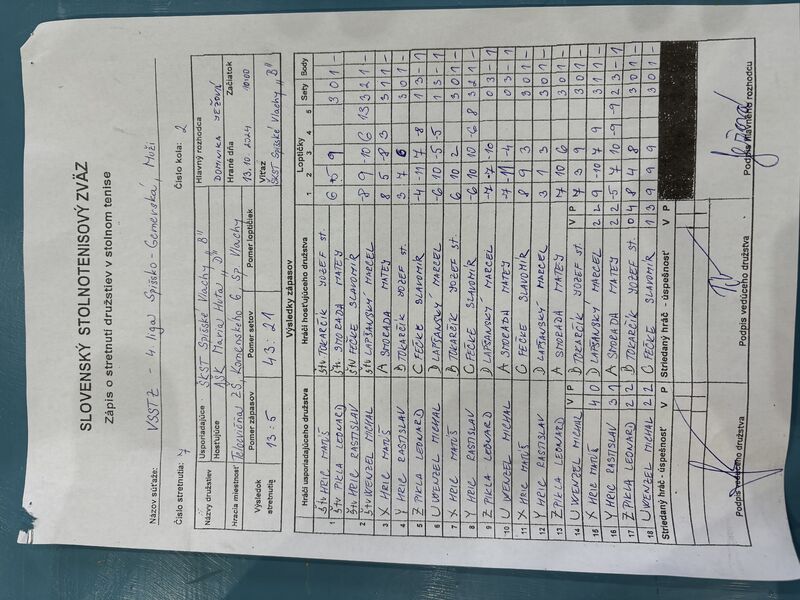 SLOVENSKÝ STOLNOTENISOVÝ ZVÄZ
Zápis o stretnutí družstiev v stolnom tenise
Názov súťaže: VSSTZ - 4. liga Spišsko-Gemerská, Muži
Číslo stretnutia: 7 Číslo kola: 2
Názvy družstiev Usporiadajúce ŠKST Spišské Vlachy "B" Hlavný rozhodca
Hosťujúce AŠK Mária Huta "D" DOMINIKA
Hracia miestnosť Telocvičňa ZŠ, Komenského 6 Sp. Vlachy Hrané dňa Začiatok
13.10.2024 10:00
Výsledok stretnutia Pomer zápasov Pomer setov Pomer loptičiek Víťaz
13:5 43:21 ŠKST Spišské Vlachy "B"
Výsledky zápasov
Hráči usporiadajúceho družstva Hráči hosťujúceho družstva Loptičky Sety Body
1 2 3 4 5
1 Štv HRIC MATÚŠ Štv TOKARČÍK JOZEF st. 6 5 9 3 0 1 -
Štv PIKLA LEONARD Štv SMORADA MATEJ
2 Štv HRIC RASTISLAV Štv FEČKE SLAVOMÍR -8 9 -10 6 13 3 2 1 -
Štv WENZEL MICHAL Štv LAPŠANSKÝ MARCEL
3 X HRIC MATÚŠ A SMORADA MATEJ 8 5 -8 3 3 1 1 -
4 Y HRIC RASTISLAV B TOKARČÍK JOZEF st. 3 7 6 3 0 1 -
5 Z PIKLA LEONARD C FEČKE SLAVOMÍR -4 -11 7 -8 1 3 - 1
6 U WENZEL MICHAL D LAPŠANSKÝ MARCEL -6 10 -5 -5 1 3 - 1
7 X HRIC MATÚŠ B TOKARČÍK JOZEF st. 6 10 2 3 0 1 -
8 Y HRIC RASTISLAV C FEČKE SLAVOMÍR -6 10 10 -6 8 3 2 1 -
9 Z PIKLA LEONARD D LAPŠANSKÝ MARCEL -7 -7 -10 0 3 - 1
10 U WENZEL MICHAL A SMORADA MATEJ -7 -11 -4 0 3 - 1
11 X HRIC MATÚŠ C FEČKE SLAVOMÍR 8 9 3 3 0 1 -
12 Y HRIC RASTISLAV D LAPŠANSKÝ MARCEL 3 1 3 3 0 1 -
13 Z PIKLA LEONARD A SMORADA MATEJ 7 10 6 3 0 1 -
14 U WENZEL MICHAL V P B TOKARČÍK JOZEF st. V P 7 3 9 3 0 1 -
15 X HRIC MATÚŠ 4 0 D LAPŠANSKÝ MARCEL 2 2 9 -10 7 9 3 1 1 -
16 Y HRIC RASTISLAV 3 1 A SMORADA MATEJ 2 2 -5 7 10 -9 -9 2 3 - 1
17 Z PIKLA LEONARD 2 2 B TOKARČÍK JOZEF st. 0 4 8 4 8 3 0 1 -
18 U WENZEL MICHAL 2 2 C FEČKE SLAVOMÍR 1 3 9 9 9 3 0 1 -
Striedaný hráč - úspešnosť V P Striedaný hráč - úspešnosť V P
Podpis vedúceho družstva Podpis vedúceho družstva Podpis hlavného rozhodcu